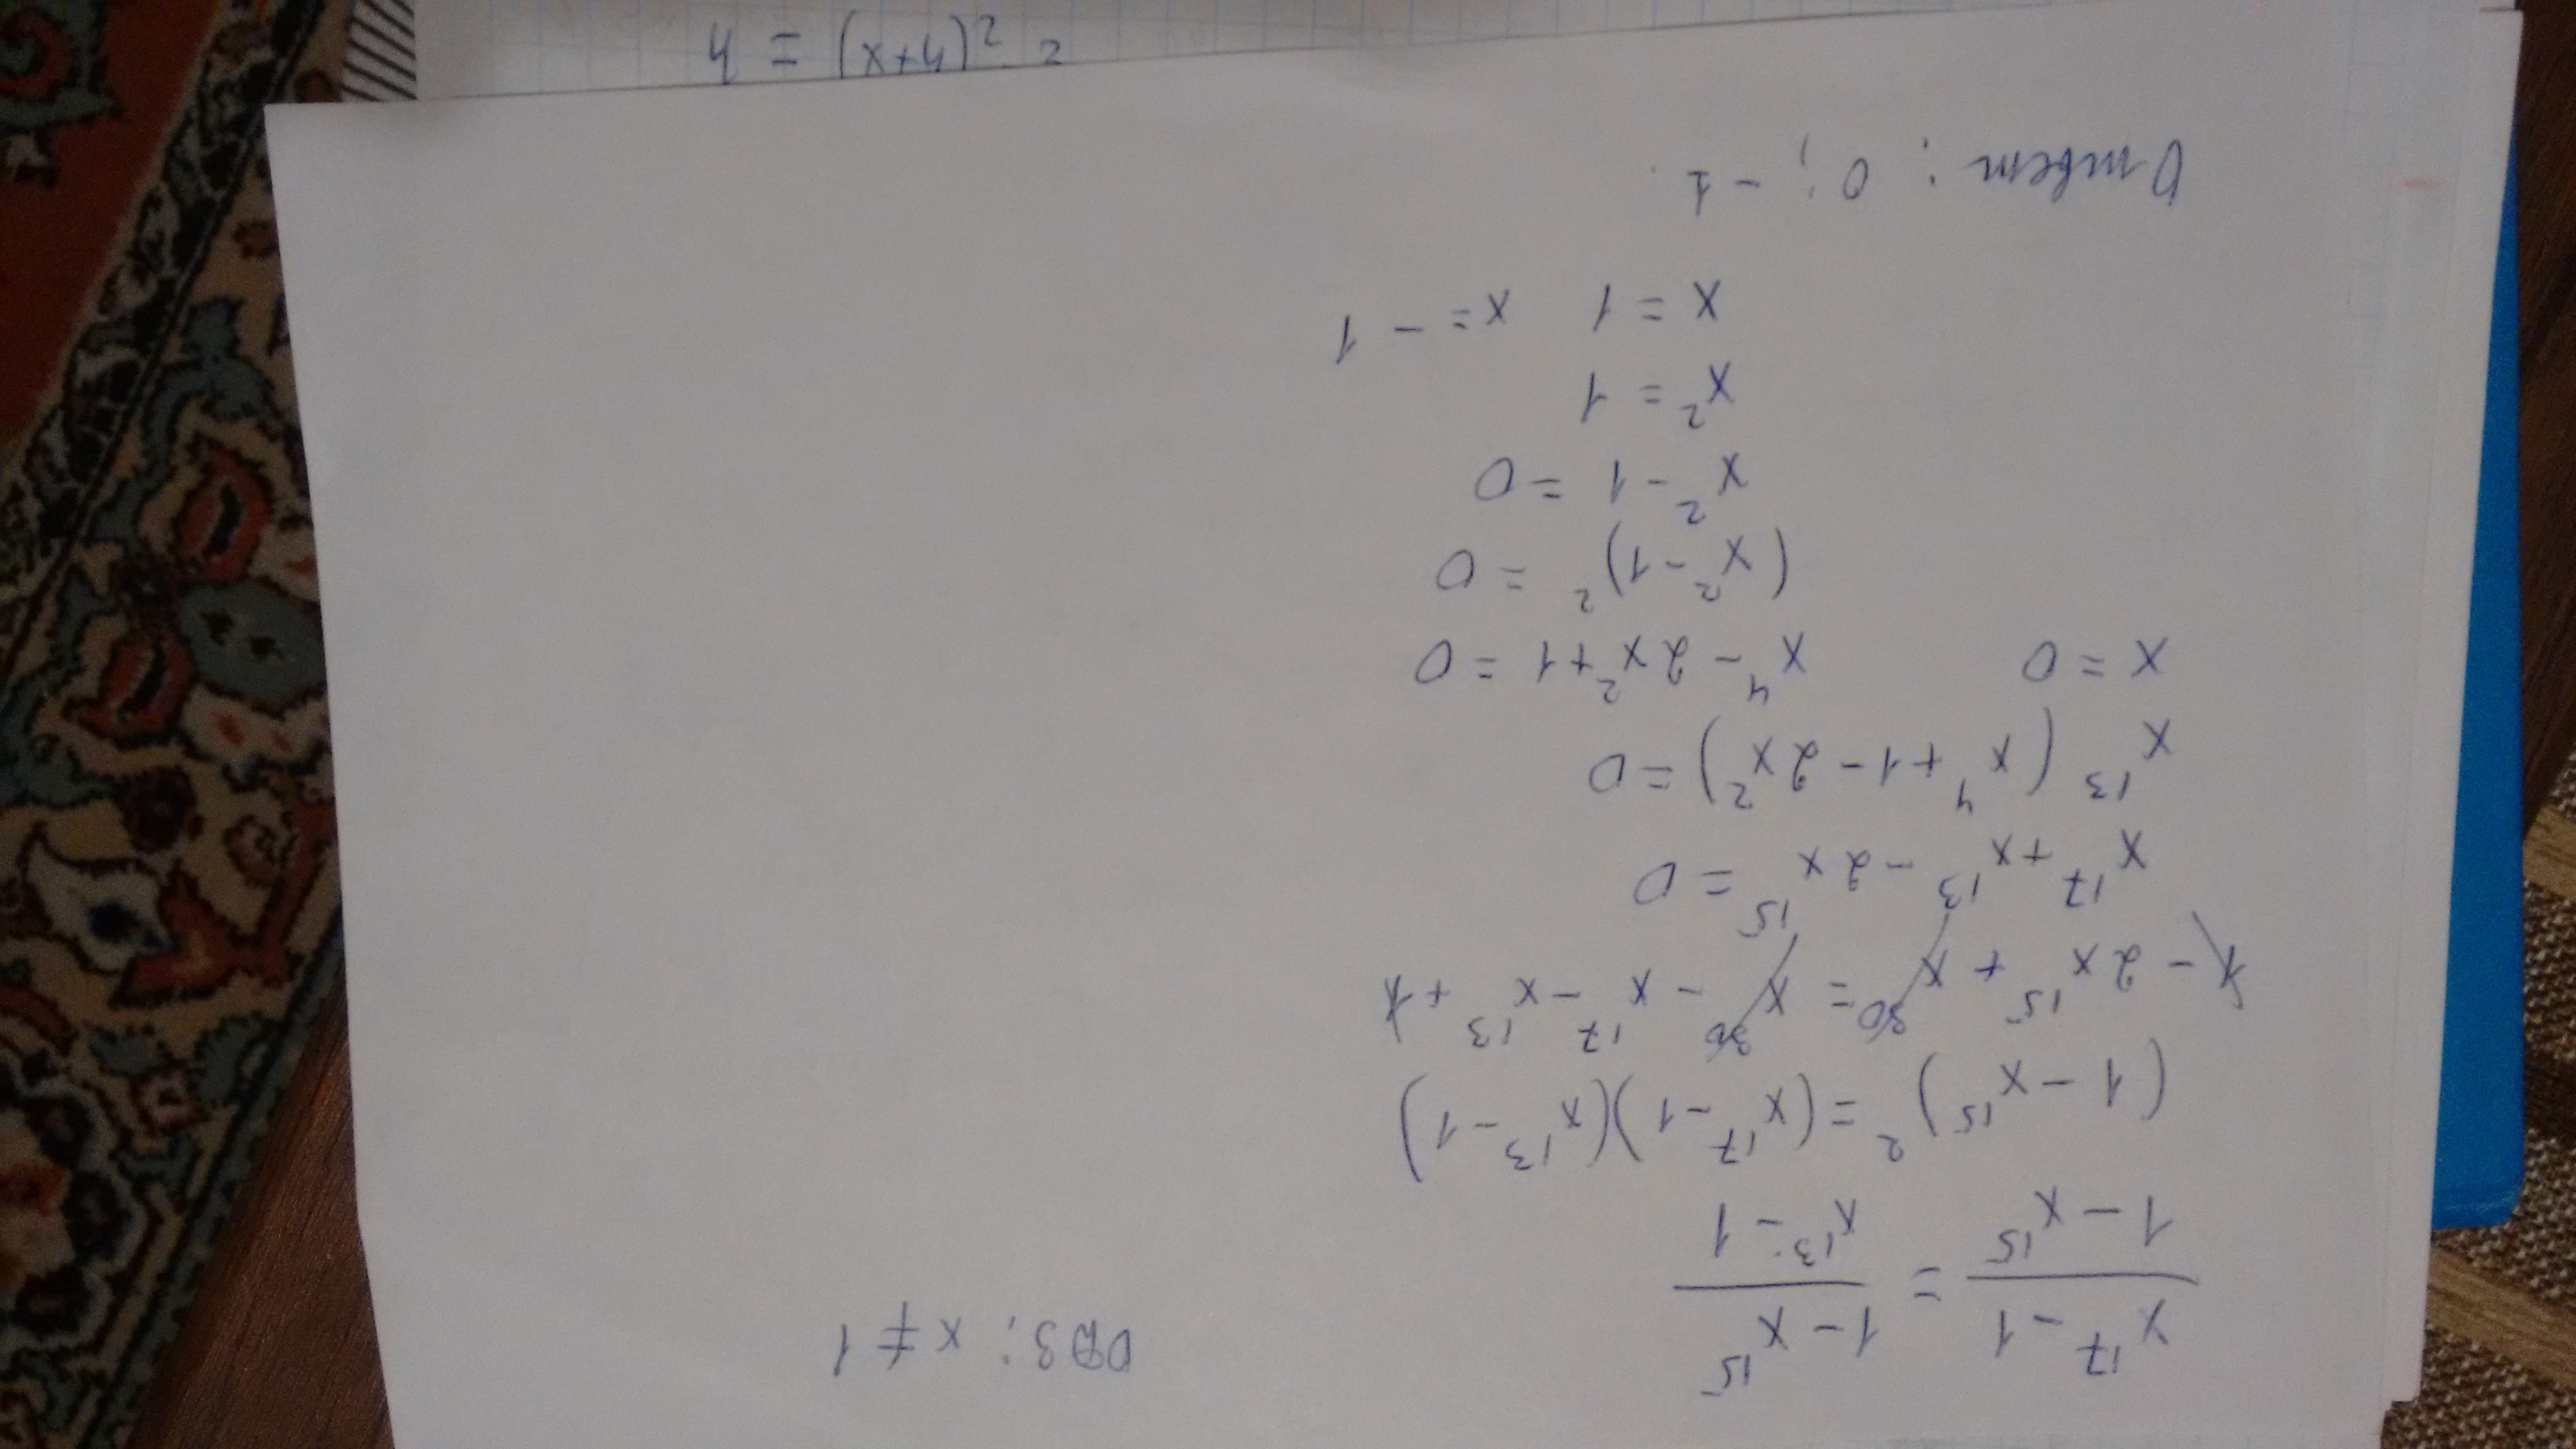 ОДЗ: x ≠ 1
x¹⁷ - 1 / 1 - x¹⁵ = 1 - x¹⁵ / x¹³ - 1
(1 - x¹⁵)² = (x¹⁷ - 1)(x¹³ - 1)
1 - 2x¹⁵ + x³⁰ = x³⁰ - x¹⁷ - x¹³ + 1
x¹⁷ + x¹³ - 2x¹⁵ = 0
x¹³ (x⁴ + 1 - 2x²) = 0
x = 0 x⁴ - 2x² + 1 = 0
(x² - 1)² = 0
x² - 1 = 0
x² = 1
x = 1 x = - 1
Ответ: 0; -1
4 = (x+4)² =